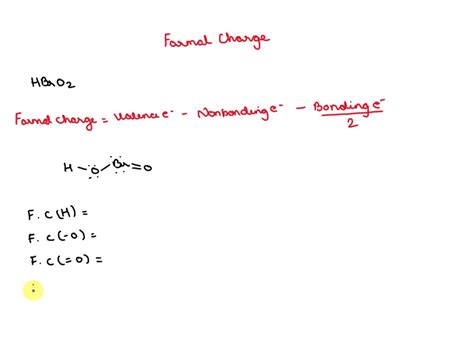 Formal Charge
HBrO2
Formal charge = Valence e⁻ - Nonbonding e⁻ - Bonding e⁻/2
H-O-Br=O
F.C(H) =
F.C(-O) =
F.C(=O) =